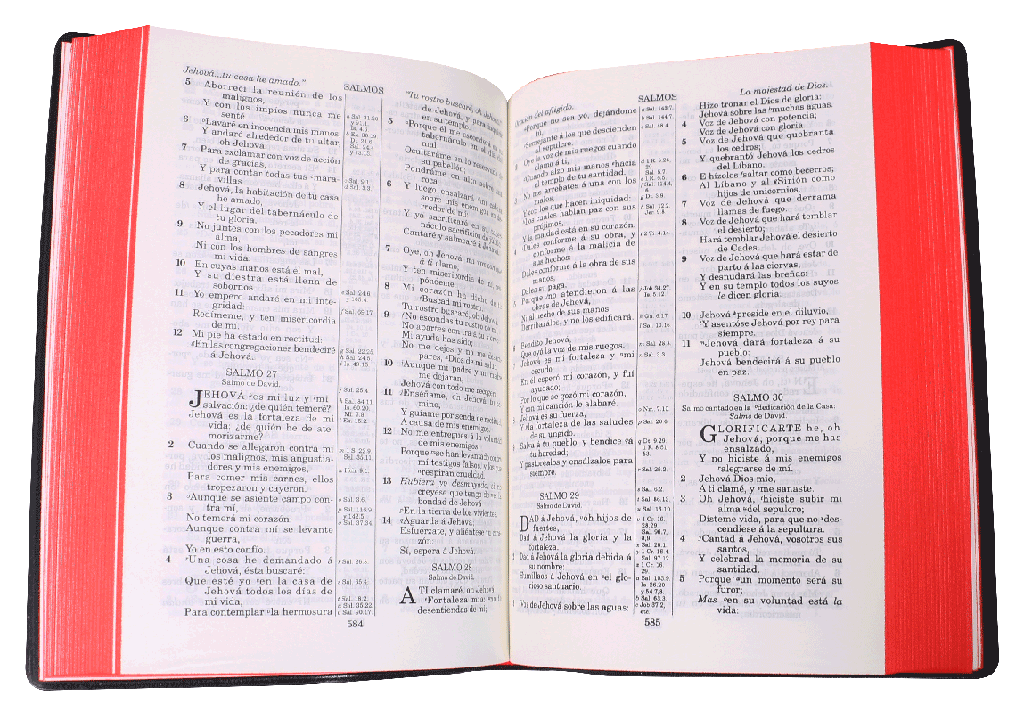 Jehová...tu casa he amado."
SALMOS
5 Aborrecí la reunión de los
malignos,
Y con los impíos nunca me
senté
6 Lavaré en inocencia mis manos
Y andaré alrededor de tu altar,
oh Jehová
7 Para exclamar con voz de acción
de gracias,
Y para contar todas tus mara-
villas
8 Jehová, la habitación de tu casa
he amado,
Y el lugar del tabernáculo de
tu gloria.
9 No juntes con los pecadores mi
alma,
Ni con los hombres de sangres
mi vida
10 En cuyas manos está el mal,
Y su diestra está llena de
sobornos
11 Yo empero andaré en mi inte-
gridad:
Redímeme, y ten misericordia
de mí.
12 Mi pie ha estado en rectitud:
En las congregaciones bendeciré
á Jehová.
SALMO 27
Salmo de David.
JEHOVÁ es mi luz y mi
salvación: ¿de quién temeré?
Jehová es la fortaleza de mi
vida: ¿de quién he de ate-
morizarme?
2 Cuando se allegaron contra mí
los malignos, mis angustia-
dores y mis enemigos,
Para comer mis carnes, ellos
tropezaron y cayeron.
3 Aunque se asiente campo con-
tra mí,
No temerá mi corazón
Aunque contra mí se levante
guerra,
Yo en esto confío.
4 Una cosa he demandado á
Jehová, ésta buscaré:
Que esté yo en la casa de
Jehová todos los días de
mi vida,
Para contemplar la hermosura
584
"Tu rostro buscaré,
de Jehová, y para
en su templo.
5 Porque él me esconderá
tabernáculo
mal
Ocultaráme en lo reservado
su pabellón;
Pondráme en alto sobre
roca
6 Y luego ensalzará mi
sobre mis enemigos en
rededor de mí:
Y yo sacrificaré en su
Cantaré y salmearé á Jehová
7 Oye, oh Jehová, mi voz
á ti clamo;
Y ten misericordia de mí,
respóndeme
8 Mi corazón ha dicho de ti
Buscad mi rostro.
Tu rostro buscaré, oh Jehová
9 No escondas tu rostro de mí
No apartes con ira á tu siervo
Mi ayuda has sido;
No me dejes y no me desam-
pares, Dios de mi salud
10 Aunque mi padre y mi madre
me dejaran,
Jehová con todo me recogerá
11 Enséñame, oh Jehová, tu ca-
mino,
Y guíame por senda de rectitud
A causa de mis enemigos.
12 No me entregues á la voluntad
de mis enemigos
Porque se han levantado contra
mí testigos falsos, y los que
respiran crueldad.
13 Hubiera yo desmayado, si no
creyese que tengo de ver la
bondad de Jehová
En la tierra de los vivientes
14 Aguarda á Jehová;
Esfuérzate, y aliéntese tu cora-
zón:
Sí, espera á Jehová.
SALMO 28
Salmo de David.
A TI clamaré, oh Jehová,
Fortaleza mía: no te
desentiendas de mí;
SALMOS
Porque no sea yo, dejándome
tú,
Semejante á los que descienden
al sepulcro.
Oye la voz de mis ruegos cuando
clamo á ti,
Cuando alzo mis manos hacia
el templo de tu santidad.
No me arrebates á una con los
malos,
Y con los que hacen iniquidad:
Los cuales hablan paz con sus
prójimos,
Y la maldad está en su corazón.
Dales conforme á su obra, y
conforme á la malicia de
sus hechos:
Dales conforme á la obra de sus
manos,
Dales su paga.
Porque no atendieron á las
obras de Jehová,
Ni al hecho de sus manos
Derribarálos, y no los edificará.
Bendito Jehová,
Que oyó la voz de mis ruegos.
Jehová es mi fortaleza y mi
escudo
En él esperó mi corazón, y fuí
ayudado;
Por lo que se gozó mi corazón,
Y con mi canción le alabaré.
Jehová es su fuerza,
Y la fortaleza de las saludes
de su ungido.
Salva á tu pueblo, y bendice á
tu heredad;
Y pastoréalos y ensálzalos para
siempre.
SALMO 29
Salmo de David.
DAD á Jehová, oh hijos de
fuertes,
Dad á Jehová la gloria y la
fortaleza.
Dad á Jehová la gloria debida á
su nombre:
Humillaos á Jehová en el glo-
rioso santuario.
Voz de Jehová sobre las aguas:
585
La majestad de Dios.
Hizo tronar el Dios de gloria:
Jehová sobre las muchas aguas
4 Voz de Jehová con potencia;
Voz de Jehová con gloria
5 Voz de Jehová que quebranta
los cedros;
Y quebrantó Jehová los cedros
del Líbano.
6 E hízolos saltar como becerros;
Al Líbano y al Sirión como
hijos de unicornios.
7 Voz de Jehová que derrama
llamas de fuego.
8 Voz de Jehová que hará temblar
el desierto;
Hará temblar Jehová el desierto
de Cades.
9 Voz de Jehová que hará estar de
parto á las ciervas,
Y desnudará las breñas:
Y en su templo todos los suyos
le dicen gloria.
10 Jehová preside en el diluvio,
Y asentóse Jehová por rey para
siempre.
11 Jehová dará fortaleza á su
pueblo:
Jehová bendecirá á su pueblo
en paz.
SALMO 30
Salmo cantado en la dedicación de la Casa:
Salmo de David.
GLORIFICARTE he, oh
Jehová, porque me has
ensalzado,
Y no hiciste á mis enemigos
alegrarse de mí.
2 Jehová Dios mío,
A ti clamé, y me sanaste.
3 Oh Jehová, hiciste subir mi
alma del sepulcro;
Dísteme vida, para que no des-
cendiese á la sepultura.
4 Cantad á Jehová, vosotros sus
santos,
Y celebrad la memoria de su
santidad.
5 Porque un momento será su
furor;
Mas en su voluntad está la
vida: